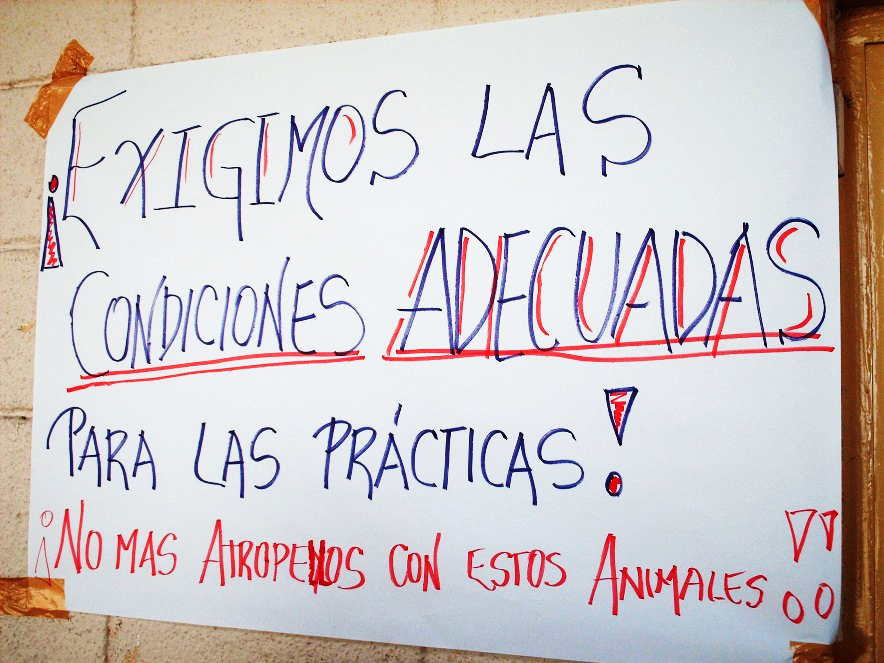 ¡EXIGIMOS LAS
CONDICIONES ADECUADAS
PARA LAS PRÁCTICAS!
¡NO MAS ATROPELLOS CON ESTOS ANIMALES!!